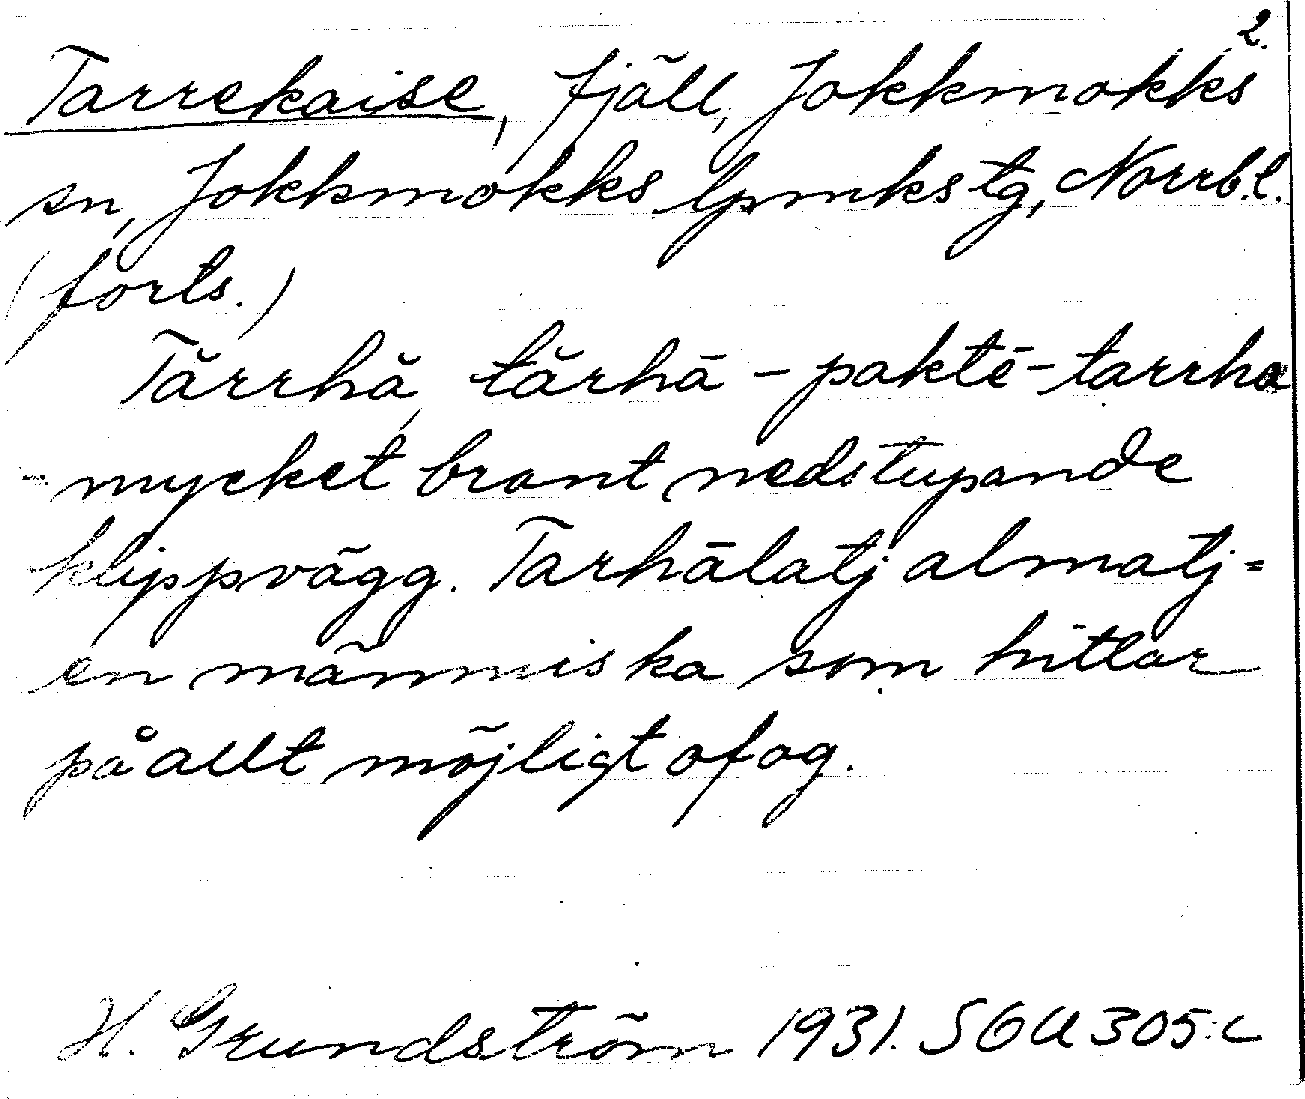 2.
Tarrekaise, fjäll, Jokkmokks
sn, Jokkmokks lpmks tg, Norrb.l.
(forts.)
Tărrhă, tărhā - paktē-tarrha
- mycket brant nedstupande
klippvägg. Tarhālatj almatj =
en människa som hittar
på allt möjligt ofog.
H. Grundström 1931. SGU 305:c